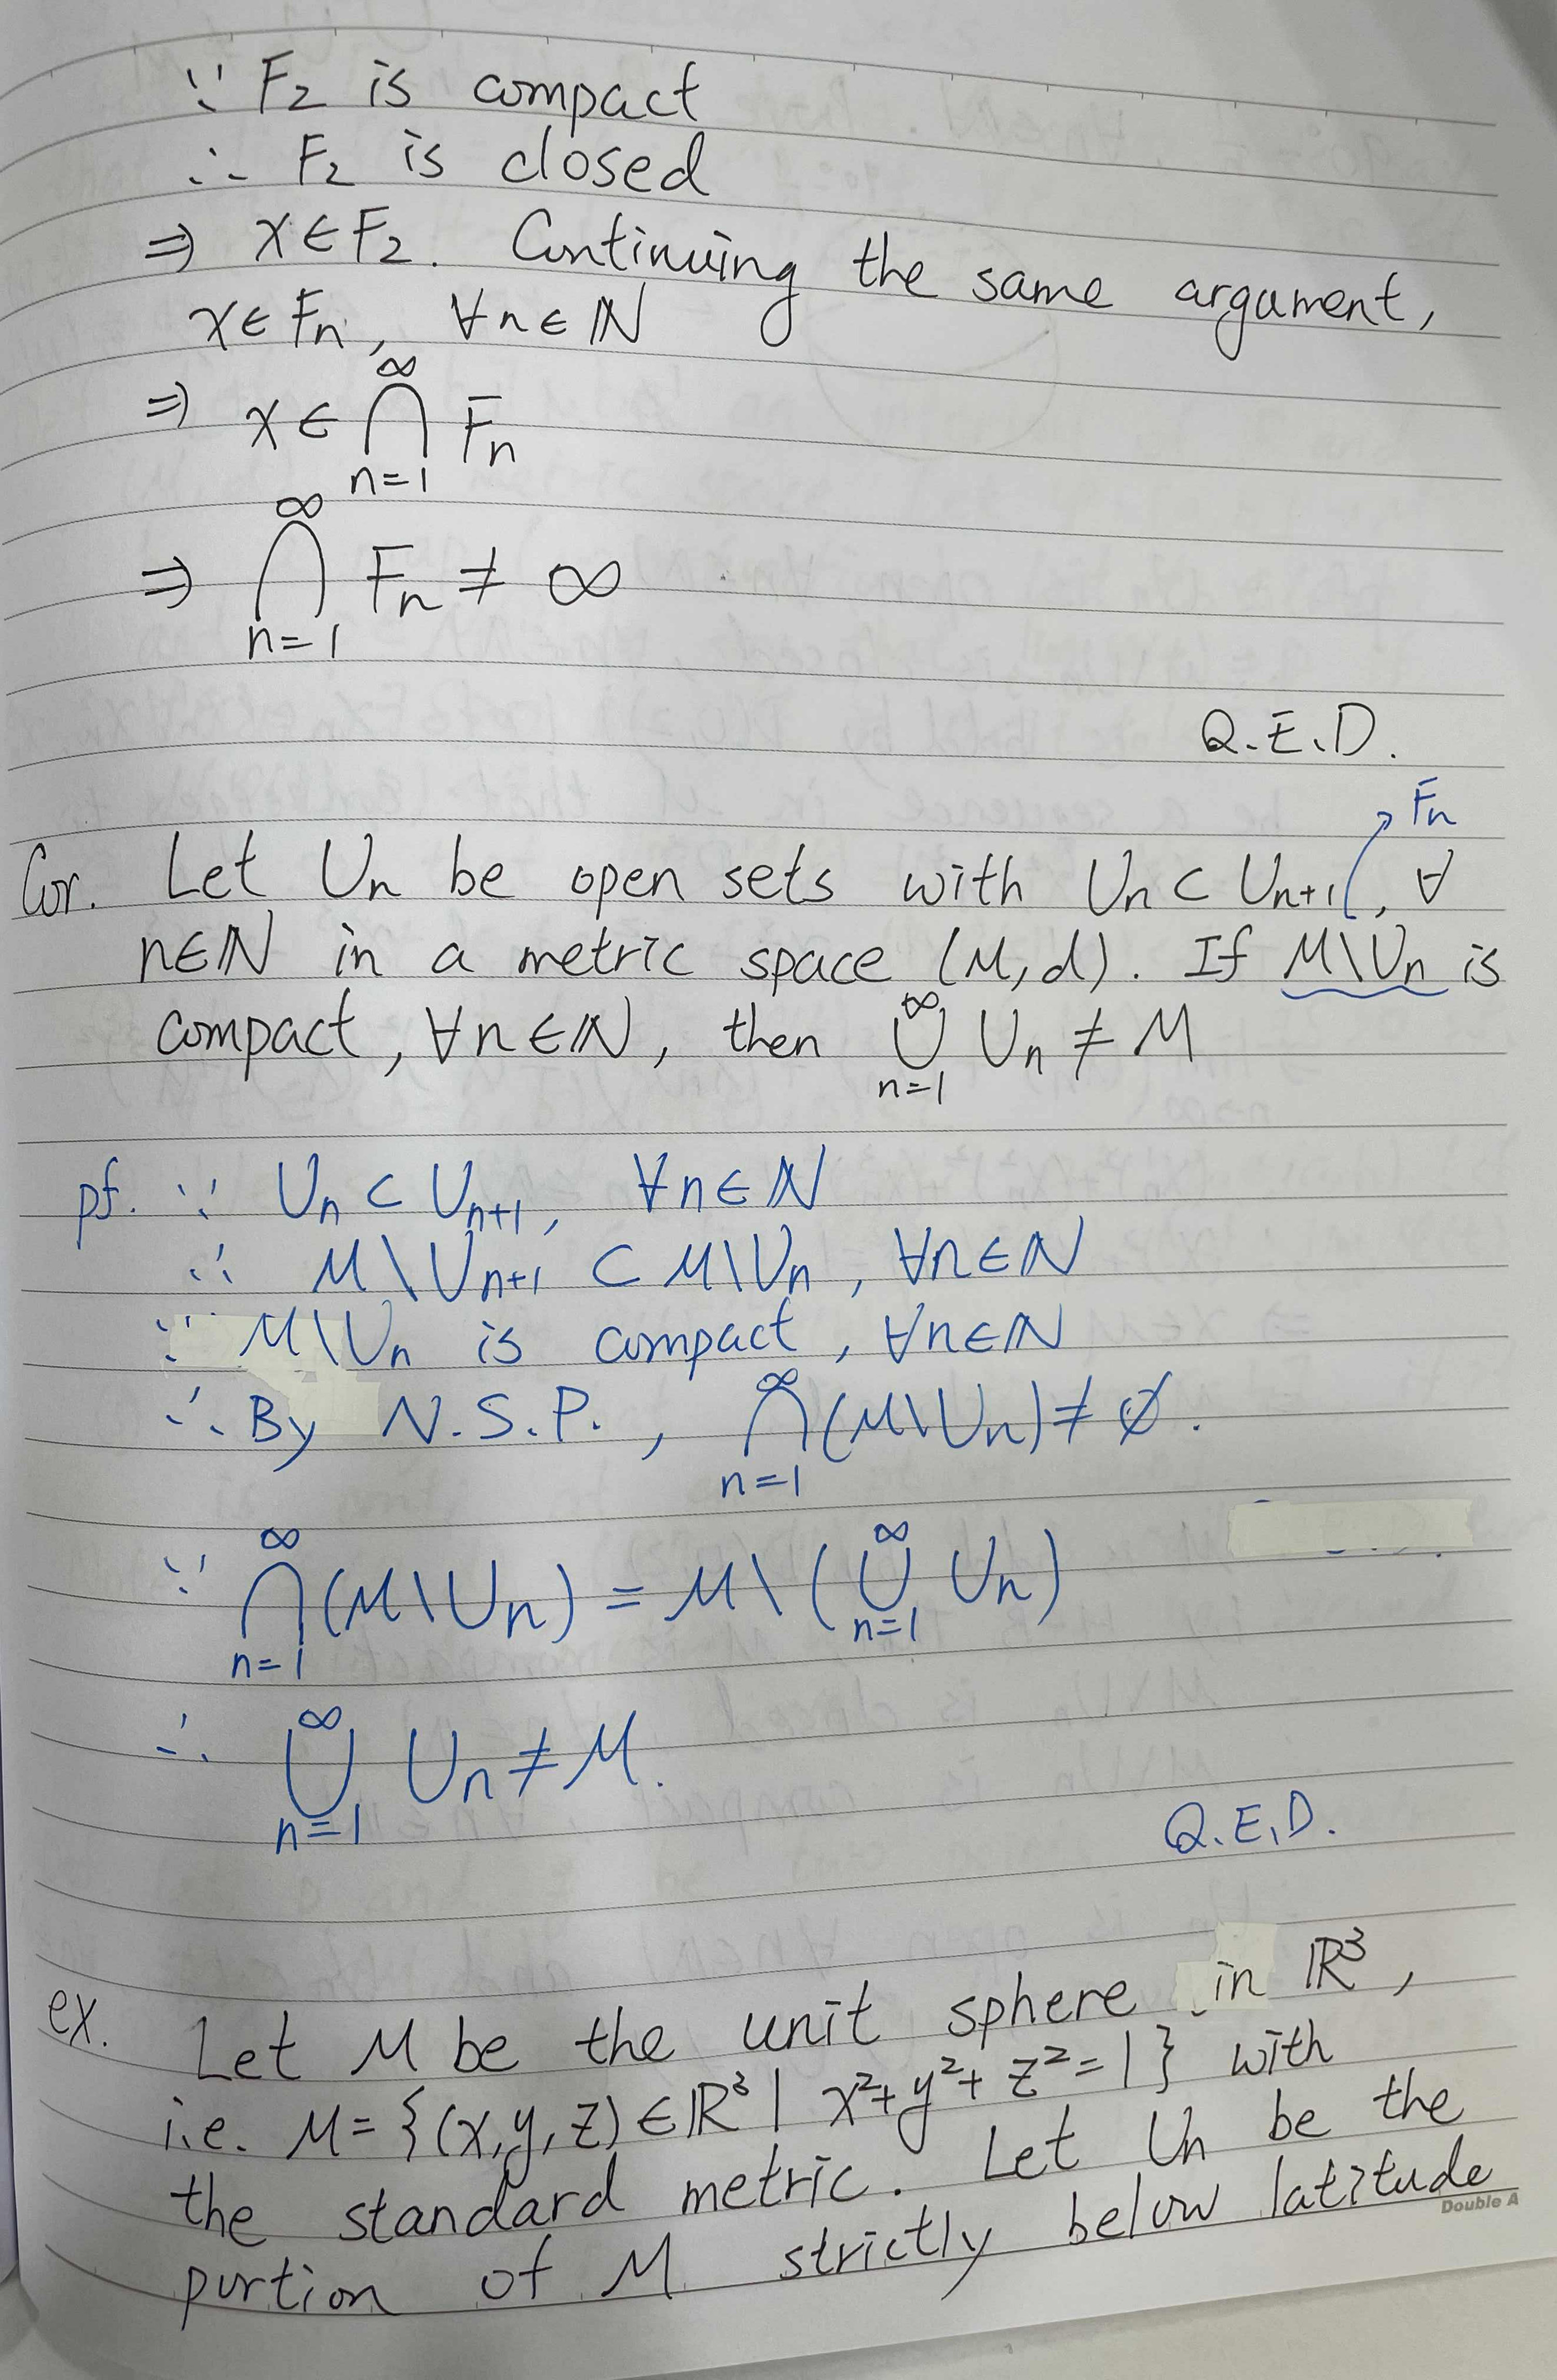 ∵ F₂ is compact
∴ F₂ is closed
⇒ x∈F₂. Continuing the same argument,
x∈Fₙ, ∀n∈ℕ
⇒ x∈ ⋂_{n=1}^{∞} Fₙ
⇒ ⋂_{n=1}^{∞} Fₙ ≠ ∞
Q.E.D.
Fₙ
Cor. Let Uₙ be open sets with Uₙ ⊂ Uₙ₊₁, ∀
n∈ℕ in a metric space (M,d). If M\Uₙ is
compact, ∀n∈ℕ, then ⋃_{n=1}^{∞} Uₙ ≠ M
pf. ∵ Uₙ ⊂ Uₙ₊₁, ∀n∈ℕ
∴ M\Uₙ₊₁ ⊂ M\Uₙ, ∀n∈ℕ
∵ M\Uₙ is compact, ∀n∈ℕ
∴ By N.S.P., ⋂_{n=1}^{∞} (M\Uₙ) ≠ ∅.
∵ ⋂_{n=1}^{∞} (M\Uₙ) = M\(⋃_{n=1}^{∞} Uₙ)
∴ ⋃_{n=1}^{∞} Uₙ ≠ M.
Q.E.D.
ex. Let M be the unit sphere in ℝ³,
i.e. M = {(x,y,z)∈ℝ³ | x²+y²+z²=1} with
the standard metric. Let Uₙ be the
portion of M strictly below latitude
Double A